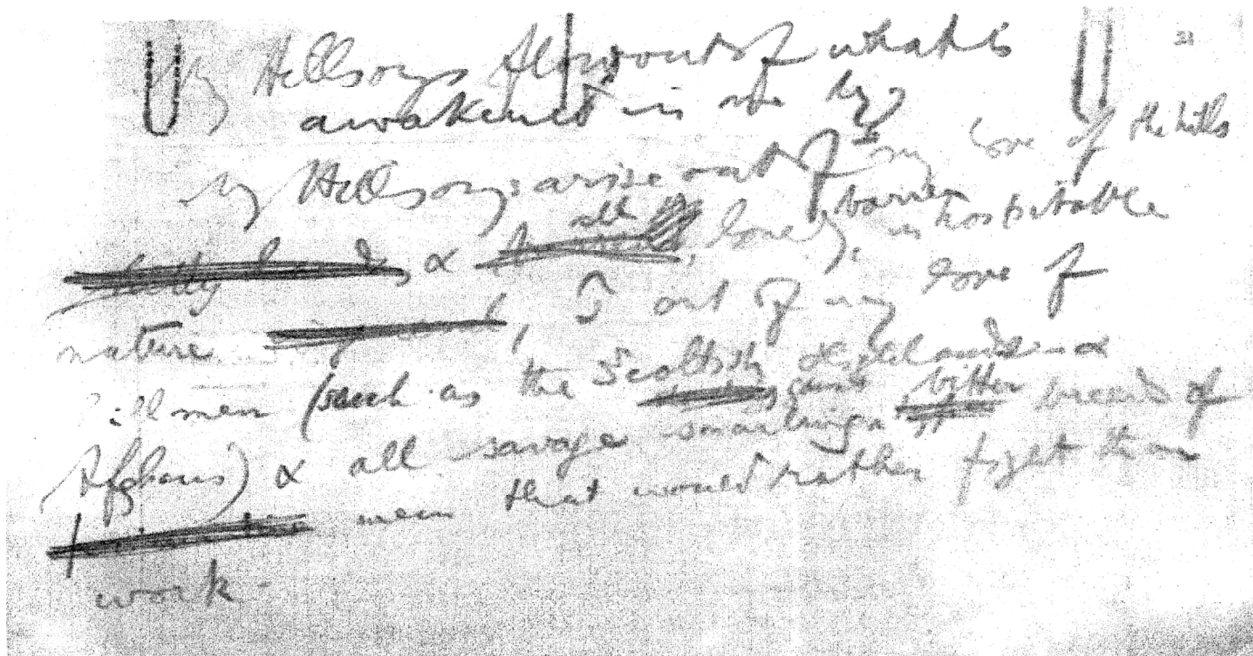 My Hillsongs flow out of what is
awakened in me by
My Hillsongs arise out of my love of the hills
& all, lonely, barren, inhospitable
nature, & out of my love of
hillmen (such as the Scottish Highlands &
Afghans) & all savage gaunt bitter breeds of
men that would rather fight than
work -